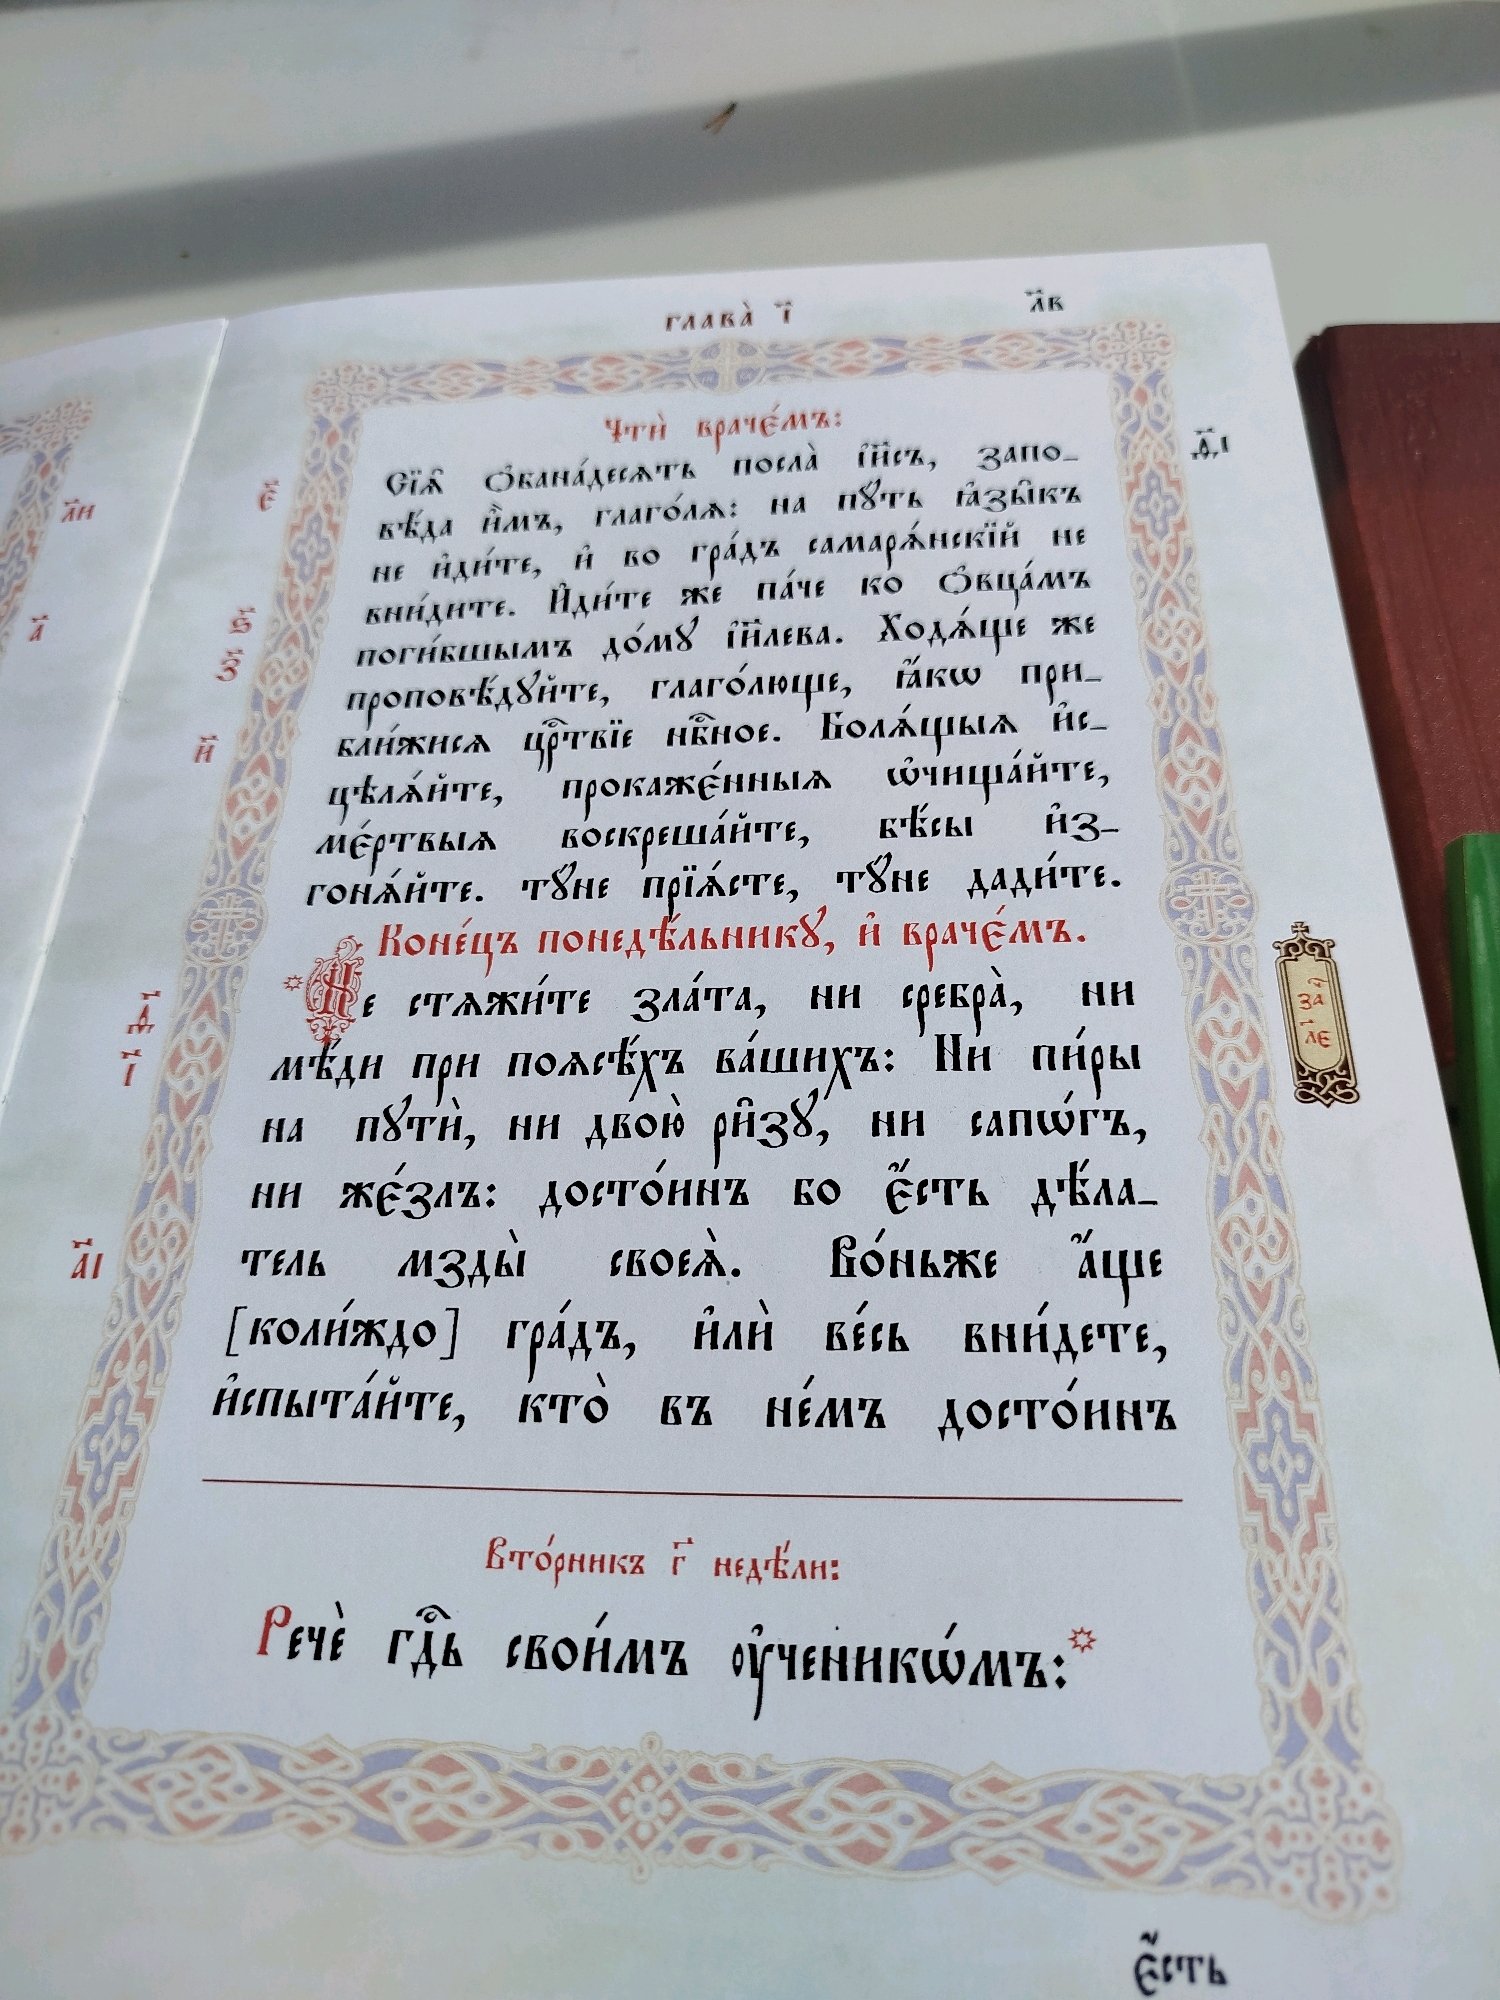 глава̀ і҃
л҃в
Чтѝ враче́мъ:
д҃і
л҃и
а҃
є҃
Сїѧ҄ ѻ҆бана́десѧть посла̀ і҆и҃съ, запо-
вѣ́да и҆̀мъ, глаго́лѧ: на пꙋ́ть ꙗ҆зы́къ
не и҆ди́те, и҆ во гра́дъ самарѧ́нскїй не
вни́дите. И҆ди́те же па́че ко ѻ҆вца́мъ
ѕ҃
поги́бшымъ до́мꙋ і҆и҃лева. Ходѧ́ще же
з҃
проповѣ́дꙋйте, глаго́люще, ꙗ҆́кѡ при-
бли́жисѧ црⷭ҇твїе нбⷭ҇ное. Болѧ́щыѧ и҆с-
и҃
цѣлѧ́йте, прокаже́нныѧ ѡ҆чища́йте,
ме́ртвыѧ воскреша́йте, бѣ́сы и҆з-
гонѧ́йте. тꙋ́не прїѧ́сте, тꙋ́не дади́те.
Коне́цъ понедѣ́льникꙋ, и҆ враче́мъ.
*Не стѧжи́те зла́та, ни сребра̀, ни
за҄
л҃е
ѳ҃
мѣ́ди при поѧсѣ́хъ ва́шихъ: Ни пи́ры
і҃
на пꙋтѝ, ни двою̀ ри҄зꙋ, ни сапѡ́гъ,
ни же́злъ: досто́инъ бо є҆́сть дѣ́ла-
тель мзды̀ своеѧ̀. Во́ньже а҆́ще
а҃і
[коли́ждо] гра́дъ, и҆лѝ ве́сь вни́дете,
и҆спыта́йте, кто̀ въ не́мъ досто́инъ
Вто́рникъ г҃ недѣ́ли:
Речѐ гдⷭ҇ь свои́мъ ᲂу҆ченикѡ́мъ:*
є҆́сть